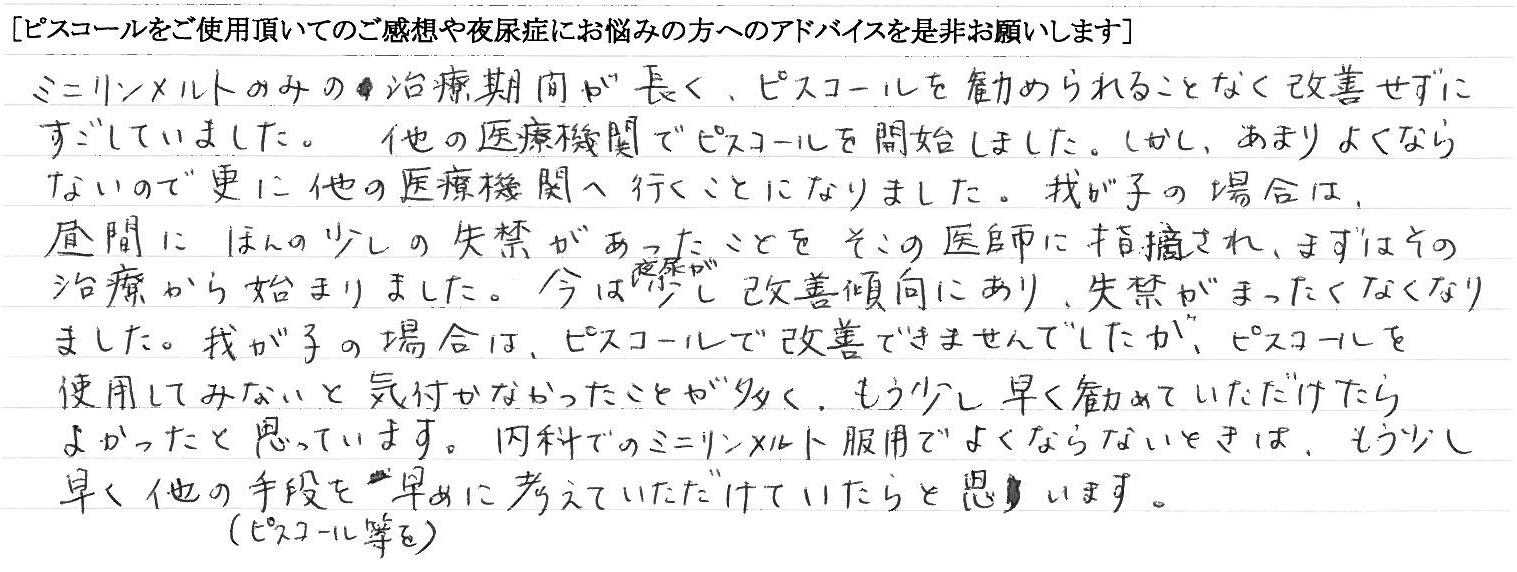 [ピスコールをご使用頂いてのご感想や夜尿症にお悩みの方へのアドバイスを是非お願いします]
ミニリンメルトのみの治療期間が長く、ピスコールを勧められることなく改善せずに
すごしていました。 他の医療機関でピスコールを開始しました。しかし、あまりよくなら
ないので更に他の医療機関へ行くことになりました。我が子の場合は、
昼間にほんの少しの失禁があったことをそこの医師に指摘され、まずはその
治療から始まりました。今は夜尿が少し改善傾向にあり、失禁がまったくなくなり
ました。我が子の場合は、ピスコールで改善できませんでしたが、ピスコールを
使用してみないと気付かなかったことが多く、もう少し早く勧めていただけたら
よかったと思っています。内科でのミニリンメルト服用でよくならないときは、もう少し
早く他の手段を早めに考えていただけていたらと思います。
(ピスコール等を)